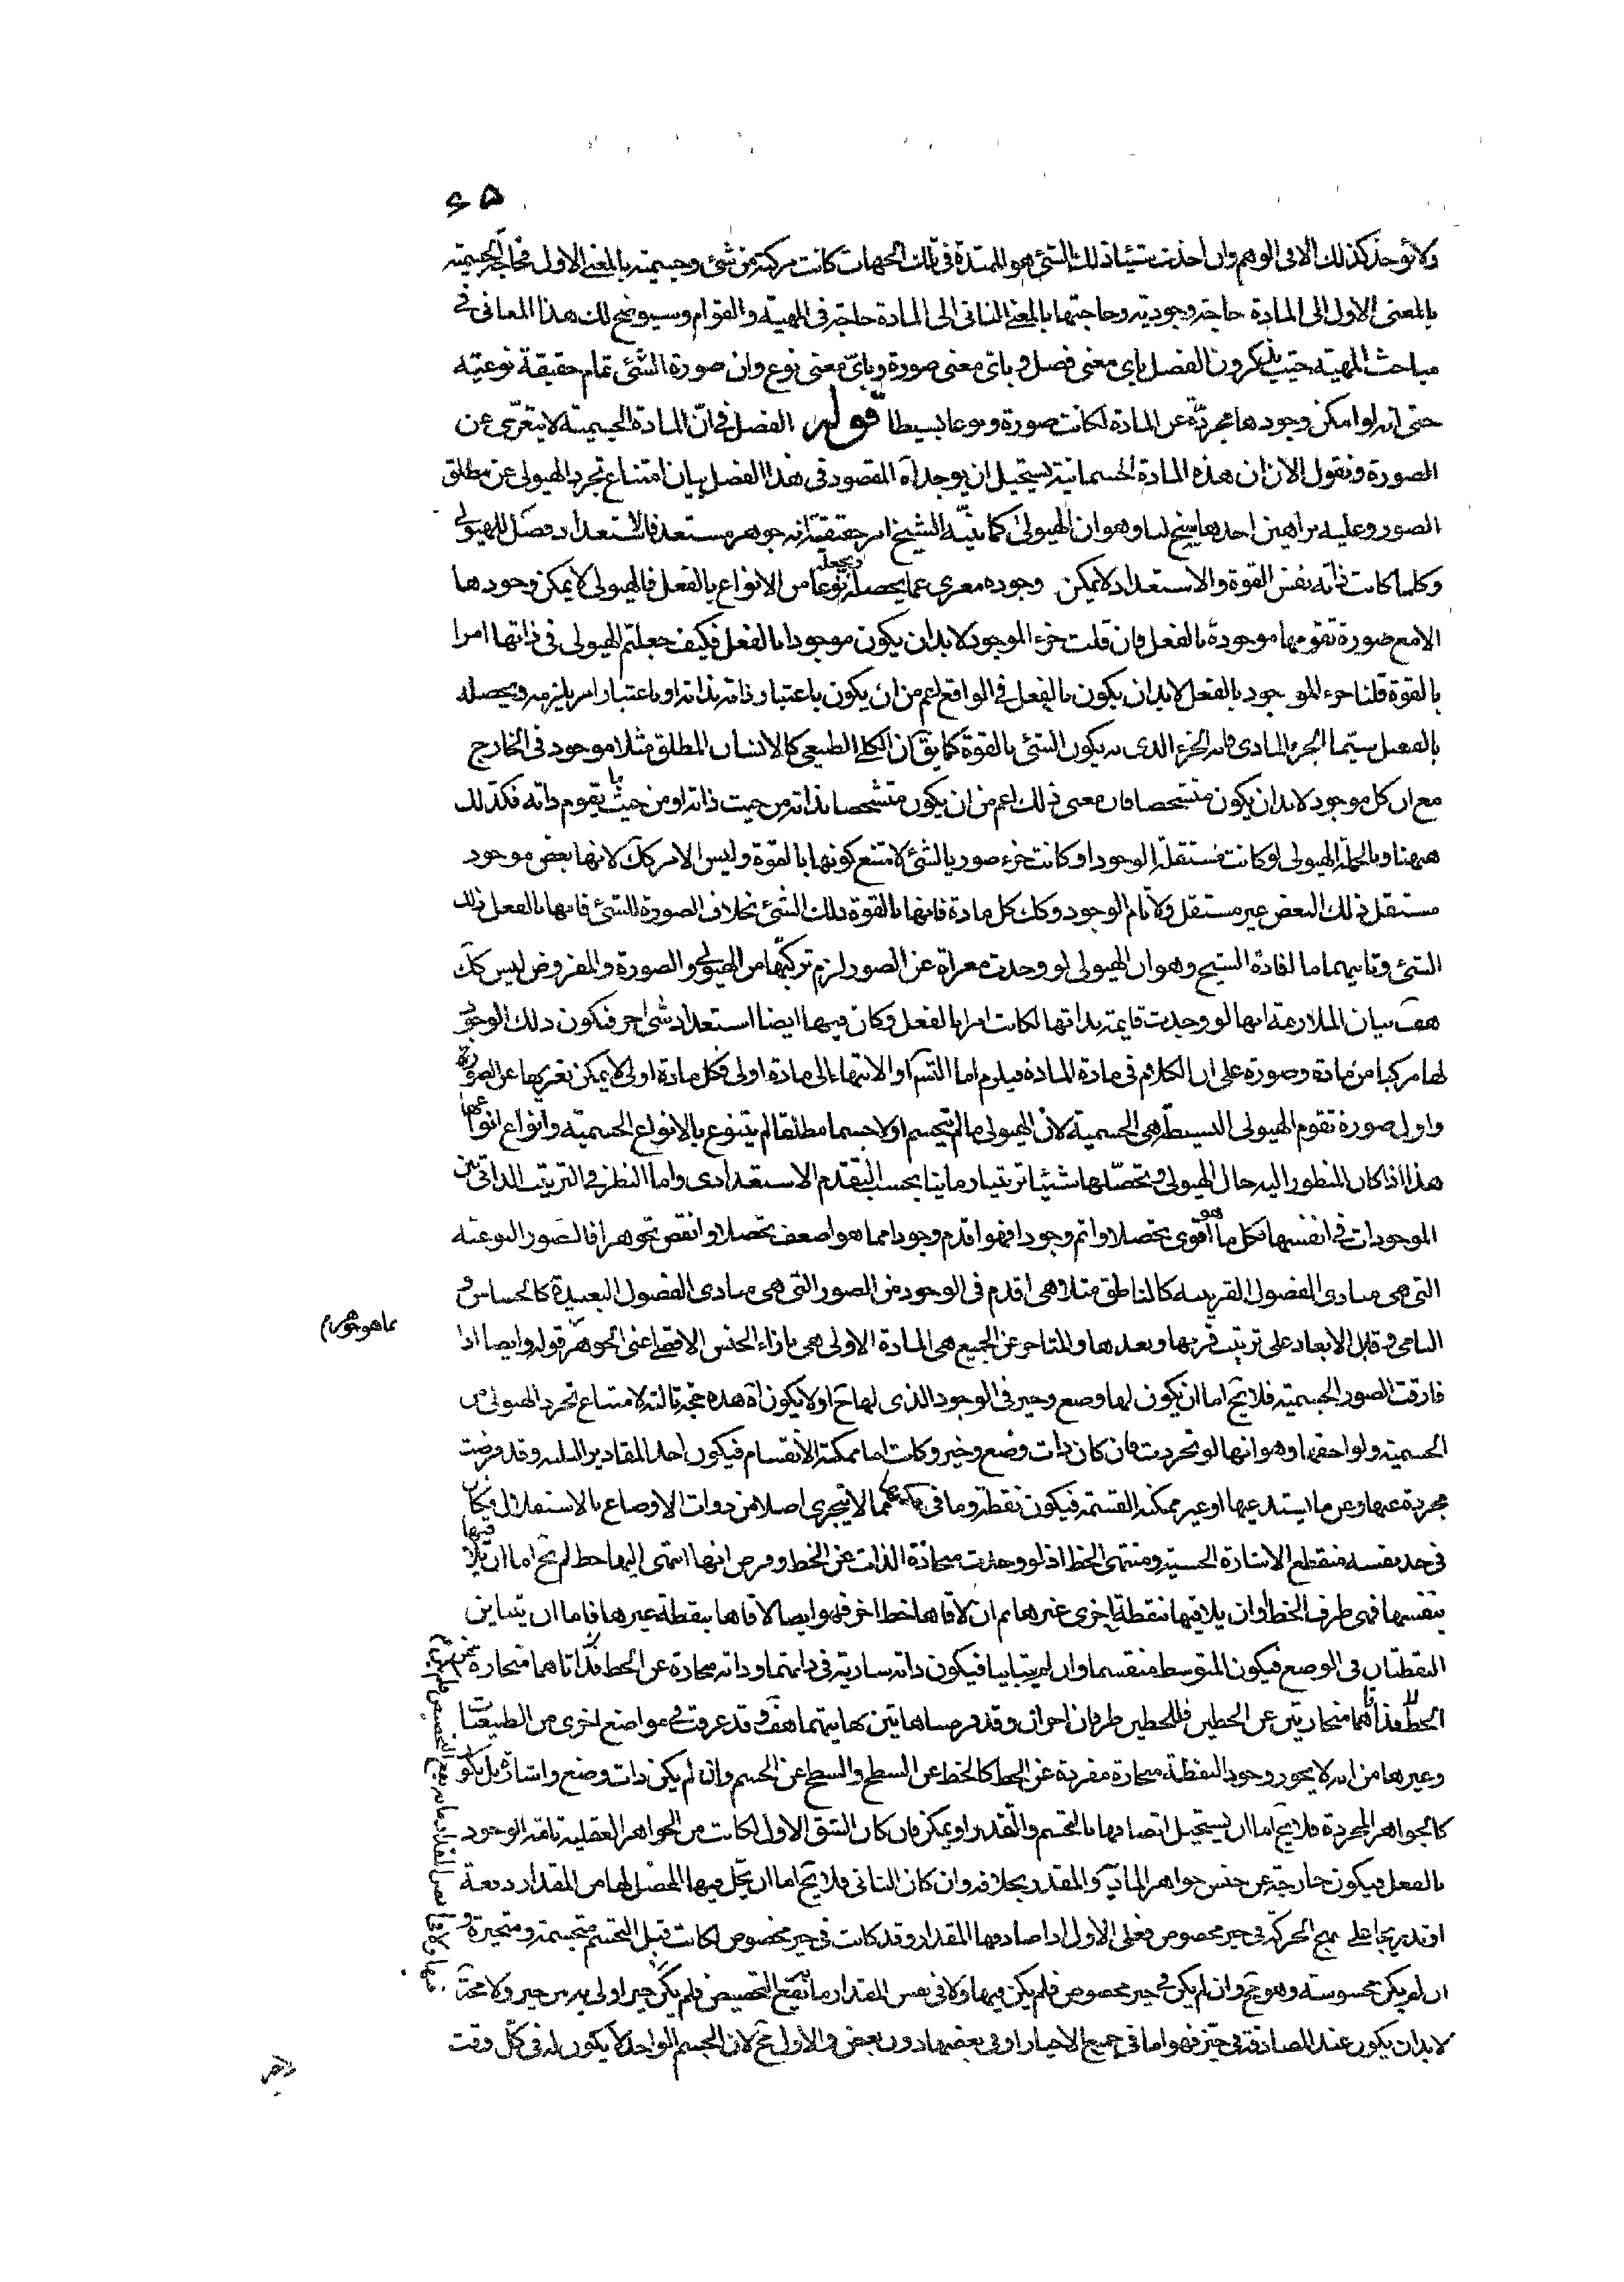 ٦٥
ولا يؤخذ كذلك الا فى الوهم وان اخذت شيئا ذلك الشئ هو الممتدة فى تلك الجهات كانت مركبة من شئ وجسمية بالمعنى الاول فحاجة الجسمية
بالمعنى الاول الى المادة حاجة وجودية وحاجتها بالمعنى الثانى الى المادة حاجة فى المهية والقوام وسيوضح لك هذا المعانى فى
مباحث المهية حيث يذكرون الفصل باى معنى فصل وباى معنى صورة وباىّ معنى نوع وان صورة الشئ تمام حقيقة نوعيته
حتى انه لو امكن وجودها مجردة عن المادة لكانت صورة ونوعا بسيطا قوله الفصل فى انّ المادة الجسمية لا يتعرّى عن
الصورة ونقول الان ان هذه المادة الجسمانية يستحيل ان يوجد آه المقصود فى هذا الفصل بيان امتناع تجرد الهيولى عن مطلق
الصور وعليه براهين احدها سنح لنا وهو ان الهيولى كما بيّنه الشيخ امر حقيقته انه جوهر مستعد فالاستعداد فصل للهيولى
وكلما كانت ذاته نفس القوة والاستعداد لا يمكن وجوده معرى عما يحصله ويجعله نوعا من الانواع بالفعل فالهيولى لا يمكن وجودها
الا مع صورة تقومها موجودة بالفعل فان قلت جزء الموجود لا بد ان يكون موجودا بالفعل فكيف جعلتم الهيولى فى ذاتها امرا
بالقوة قلنا جزء الموجود بالفعل لا بد ان يكون بالفعل فى الواقع اعم من ان يكون باعتبار ذاته بذاته او باعتبار امر يلزمه ويحصله
بالفعل سيّما الجزء المادى فانه الجزء الذى به يكون الشئ بالقوة كما يق ان الكلى الطبيعى كالانسان المطلق مثلا موجود فى الخارج
مع ان كل موجود لا بد ان يكون متشخصا فان معنى ذلك اعم من ان يكون متشخصا بذاته من حيث ذاته او من حيث ما يقوم ذاته فكذلك
ههنا وبالجملة الهيولى لو كانت مستقلة الوجود او كانت جزء صوريا لشئ لامتنع كونها بالقوة وليس الامر كك لانها بعض موجود
مستقل ذلك البعض غير مستقل ولا تام الوجود وكك كل مادة فانها بالقوة ذلك الشئ بخلاف الصورة للشئ فانها بالفعل ذلك
الشئ وثانيهما ما افاده الشيخ وهو ان الهيولى لو وجدت معراة عن الصور لزم تركبها من الهيولى والصورة والمفروض ليس كك
هف بيان الملازمة انها لو وجدت قايمة بذاتها لكانت امرا بالفعل وكان فيها ايضا استعداد شئ اخر فيكون ذلك الوجود
لها مركبا من مادة وصورة على ان الكلام فى مادة المادة فيلزم اما التسم او الانتهاء الى مادة اولى فكل مادة اولى لا يمكن تعريها عن الصورة
واولى صورة تقوم الهيولى البسيطة هى الجسمية لان الهيولى ما لم يتجسم اولا جسما مطلقا لم يتنوع بالانواع الجسمية وانواع انواعها
هذا اذا كان المنظور اليه حال الهيولى وتحصّلها شيئا ترتيبا زمانيا بحسب التقدم الاستعدادى واما النظر فى الترتيب الذاتى بين
الموجودات فى انفسها فكل ما هو اقوى تحصلا واتم وجودا فهو اقدم وجودا مما هو اضعف تحصلا وانقص تجوهرا فالصور النوعية
التى هى مبادى الفصول القريبة كالناطق مثلا هى اقدم فى الوجود من الصور التى هى مبادى الفصول البعيدة كالحساس و
النامى وقابل الابعاد على ترتيب قربها وبعدها والمتاخر عن الجميع هى المادة الاولى هى بازاء الجنس الاقصى اعنى الجوهر قوله وايضا اذا
بما هو جوهر
فارقت الصور الجسمية فلا يخ اما ان يكون لها وضع وحيز فى الوجود الذى لها ح او لا يكون آه هذه حجة ثالثة لامتناع تجرد الهيولى من
الجسمية ولواحقها وهو انها لو تجردت فان كان ذات وضع وحيز وكانت اما ممكنة الانقسام فيكون احد المقادير الثلثة وقد فرضت
مجردة عنها وعن ما يستدعيها او غير ممكنة القسمة فيكون نقطة وما فى حكمها مما لا يتجزى اصلا من ذوات الاوضاع بالاستقلال فكان
فى حد نفسه منقطع الاشارة الحسية ومنتهى الخط اذ لو وجدت منحازة الذات عن الخط وفرض انها انتهى اليها خط لم يخ اما ان يلاقيها
بنفسها فهى طرف الخط او ان يلاقيها نقطة اخرى غيرها ثم ان لاقاها خط اخر فهو ايضا لاقاها بنقطة غيرها فاما ان يتباين
النقطتان فى الوضع فيكون المتوسط منقسما وان لم يتباينا فيكون ذاته سارية فى ذاتهما وذاته منحازة عن الخط فذاتاهما منحازة عن
الخط فذاتاهما منحازتين عن الخطين فللخطين طرفان اخران وقد فرضناهما تين نهايتهما هف وقد عرفت فى مواضع اخرى من الطبيعيات
وغيرها من انه لا يجوز وجود النقطة منحازة مفردة عن الخط كالخط عن السطح والسطح عن الجسم وان لم يكن ذات وضع واشارة بل يكون
كالجواهر المجردة فلا يخ اما ان يستحيل اتصافها بالتجسم والتقدر او يمكن فان كان الشق الاول لكانت من الجواهر العقلية تامة الوجود
بالفعل فيكون خارجة عن جنس جواهر المادى والمقدر بخلافه وان كان الثانى فلا يخ اما ان يحل فيها المحصل لها من المقدار دفعة
او تدريجا على نهج الحركة فى حيز مخصوص فعلى الاول اذا صادفها المقدار وقد كانت فى حيز مخصوص لكانت قبل التجسم متجسمة ومتحيزة و
ان لم يكن محسوسة وهو مح وان لم يكن فى حيز مخصوص فلم يكن فيها ولا فى نفس المقدار ما يقع التخصيص فلم يكن حيز اولى به من حيز ولا محة
لا بد ان يكون عند المصادفة فى حيّز فهو اما فى جميع الاحياز او فى بعضها دون بعض والاول مح لان الجسم الواحد لا يكون له فى كل وقت